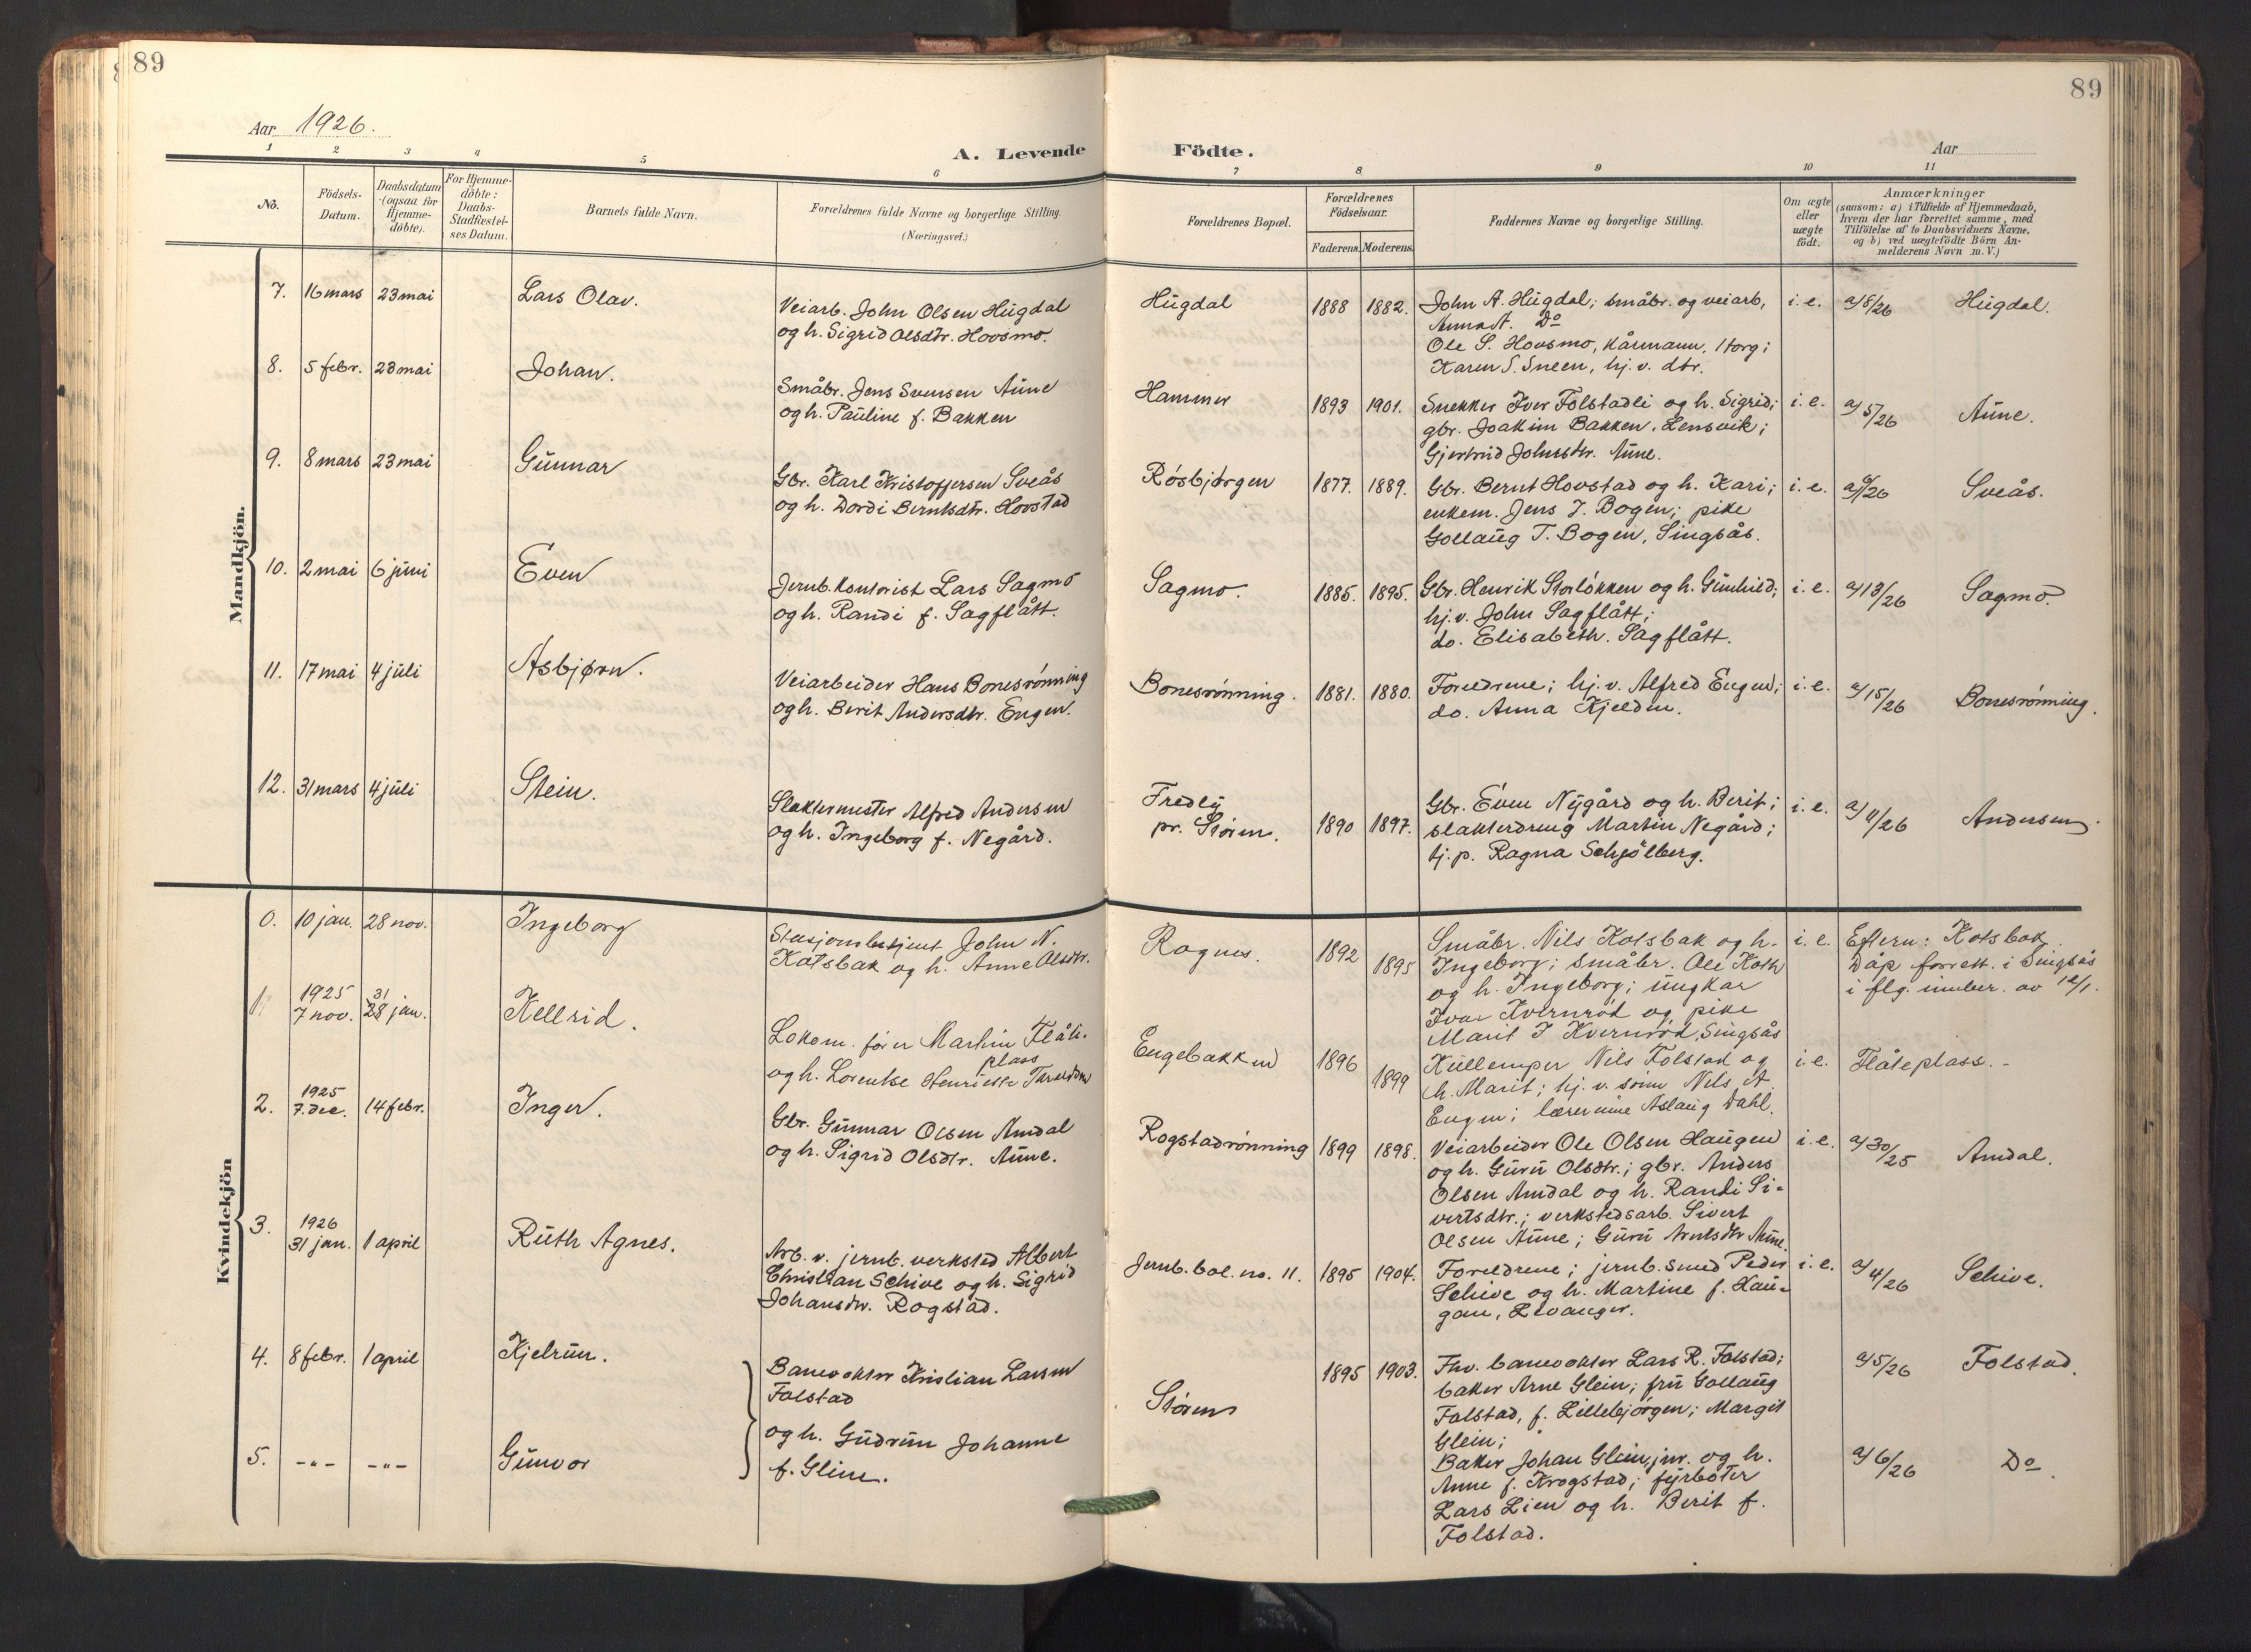 89
Aar 1926.
A. Levende
1 2 3 4 5 6
No.
Födsels-
Datum.
Daabsdatum
(ogsaa for
Hjemme-
döbte).
For Hjemme-
döbte:
Daabs-
Stadfæstel-
ses Datum.
Barnets fulde Navn.
Forældrenes fulde Navne og borgerlige Stilling.
(Næringsvei.)
Mandkjön.
7. 16 mars 23 mai Lars Olav.
Veiarb. John Olsen Hugdal
og h. Sigrid Olsdtr. Hovsmo.
8. 5 febr. 23 mai Johan.
Småbr. Jens Svensen Aune
og h. Pauline f. Bakken
9. 8 mars 23 mai Gunnar
Gbr. Karl Kristoffersen Sveås
og h. Dordi Berntsdtr. Hovstad
10. 2 mai 6 juni Even
Jernb. kontorist Lars Sagmo
og h. Randi f. Sagflått.
11. 17 mai 4 juli Asbjørn.
Veiarbeider Hans Bonesrönning
og h. Berit Andersdtr. Engen.
12. 31 mars 4 juli Stein.
Slaktermester Alfred Andersen
og h. Ingeborg f. Negård.
Kvindekjön
0. 10 jan. 28 nov. Ingeborg
Stasjonsbetjent John N.
Kotsbak og h. Anne Olsdtr.
1. 1925
7 nov. 31
28 jan. Kellrid.
Lokom. fører Martin Flåte-
plass
og h. Lorentse Henriette
2. 1925
7. dec. 14 febr. Inger.
Gbr. Gunnar Olsen Amdal
og h. Sigrid Olsdtr. Aune.
3. 1926
31 jan. 1 april Ruth Agnes.
Arb. v. jernb. verksted Albert
Christian Schive og h. Sigrid
Johansdtr. Rogstad.
4. 8 febr. 1 april Kjelrun.
Banevokter Kristian Larsen
Folstad
og h. Gudrun Johanne
5. -"- -"- Gunvor
89
Födte.
Aar
7 8 9 10 11
Forældrenes Bopæl.
Forældrenes
Födselsaar.
Faderens. Moderens.
Faddernes Navne og borgerlige Stilling.
Om ægte
eller
uægte
födt.
Anmærkninger
(saasom: a) i Tilfælde af Hjemmedaab,
hvem der har forrettet samme, med
Tilföielse af to Daabsvidners Navne,
og b) ved uægtefödte Börn An-
melderens Navn m. V.)
Hugdal 1888 1882. John A. Hugdal, småbr. og veiarb, i. e. a/8/26 Hugdal.
Anna A. Do
Ole S. Hovsmo, kårmann, Horg;
Karen S. Sneen, hj. v. dtr.
Hammer 1893 1901. Snekker Iver Folstadli og h. Sigrid; i. e. a/5/26 Aune.
gbr. Joakim Bakken, Lensvik;
Gjertrud Johnsdtr. Aune.
Røsbjørgen 1877. 1889. Gbr. Bernt Hovstad og h. Kari; i. e. a/9/26 Sveås.
enkem. Jens J. Bogen; pike
Gollaug T. Bogen, Singsås.
Sagmo. 1885. 1895. Gbr. Henrik Storløkken og h. Gunhild; i. e. a/13/26 Sagmo.
hj. v. John Sagflått;
do. Elisabeth Sagflått.
Bonesrönning. 1881. 1880. Foreldrene; hj. v. Alfred Engen; i. e. a/15/26 Bonesrönning.
do. Anna Kjelden.
Fredly
pr. Støren. 1890 1897. Gbr. Even Nygård og h. Berit; i. e. a/11/26 Andersen.
slakterdreng Martin Negård;
tj. p. Ragna Schjölberg.
Rognes. 1892 1895 Småbr. Nils Kotsbak og h. i. e. Eftern: Kotsbak.
Ingeborg; småbr. Ole Koth Dåp forrett. i Singsås
og h. Ingeborg; ungkar i flg. innber. av 12/1.
Ivar Kvernrød og pike
Marit I Kvernrød, Singsås
Engebakken 1896 1899 Kullemper Nils Folstad og i. e. Flåteplass. -
h. Marit; hj. v. sönn Nils A.
Engen; lærerinne Aslaug Dahl.
Rogstadrönning 1899 1898. Veiarbeider Ole Olsen Haugen i. e. a/30/25 Amdal.
og h. Guru Olsdtr.; gbr. Anders
Olsen Amdal og h. Randi Si-
vertsdtr.; verkstedsarb. Sivert
Olsen Aune; Guru Arntsdtr Aune.
Jernb. bol. no. 11. 1895 1904. Foreldrene; jernb. smed Peder i. e. a/4/26 Schive.
Schive og h. Martine f. Hau-
gan, Levanger.
Støren 1895 1903. Fhv. banevokter Lars R. Folstad; a/5/26 Folstad.
baker Arne Glein; fru Gollaug
Folstad, f. Lillebjørgen; Margit
Glein;
Baker Johan Glein jnr. og h. a/6/26 Do.
Anne f. Krogstad; fyrbøter
Lars Lien og h. Berit f.
Folstad.